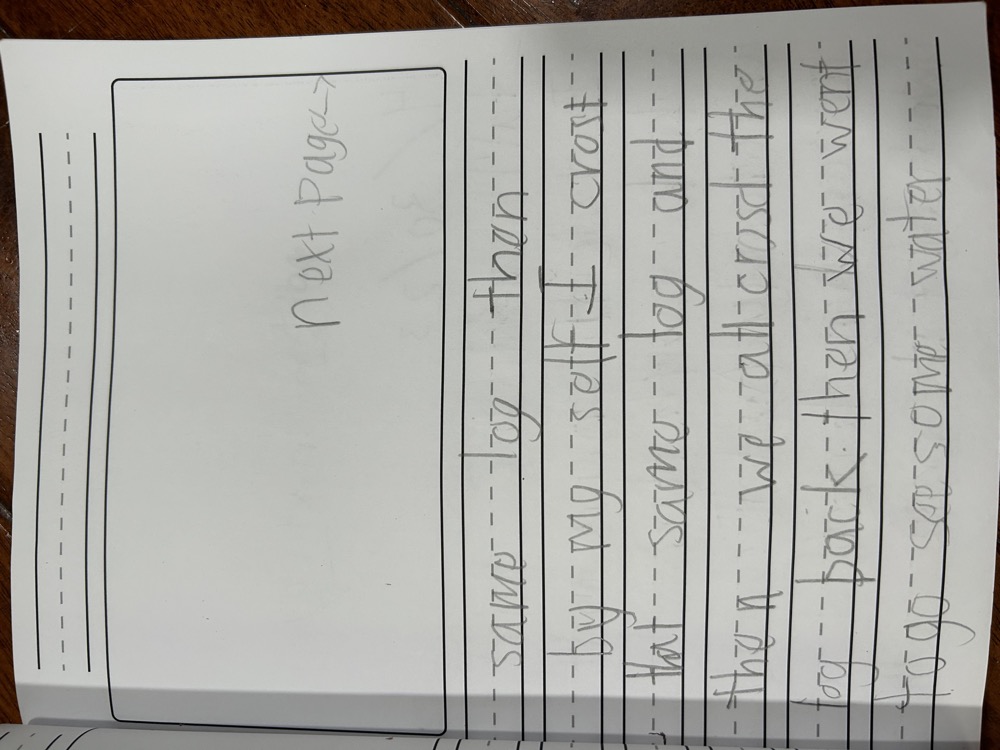 next page →
same log then
by my self I crost
that same log and
then we all crosd the
log back. then we went
to go see some water